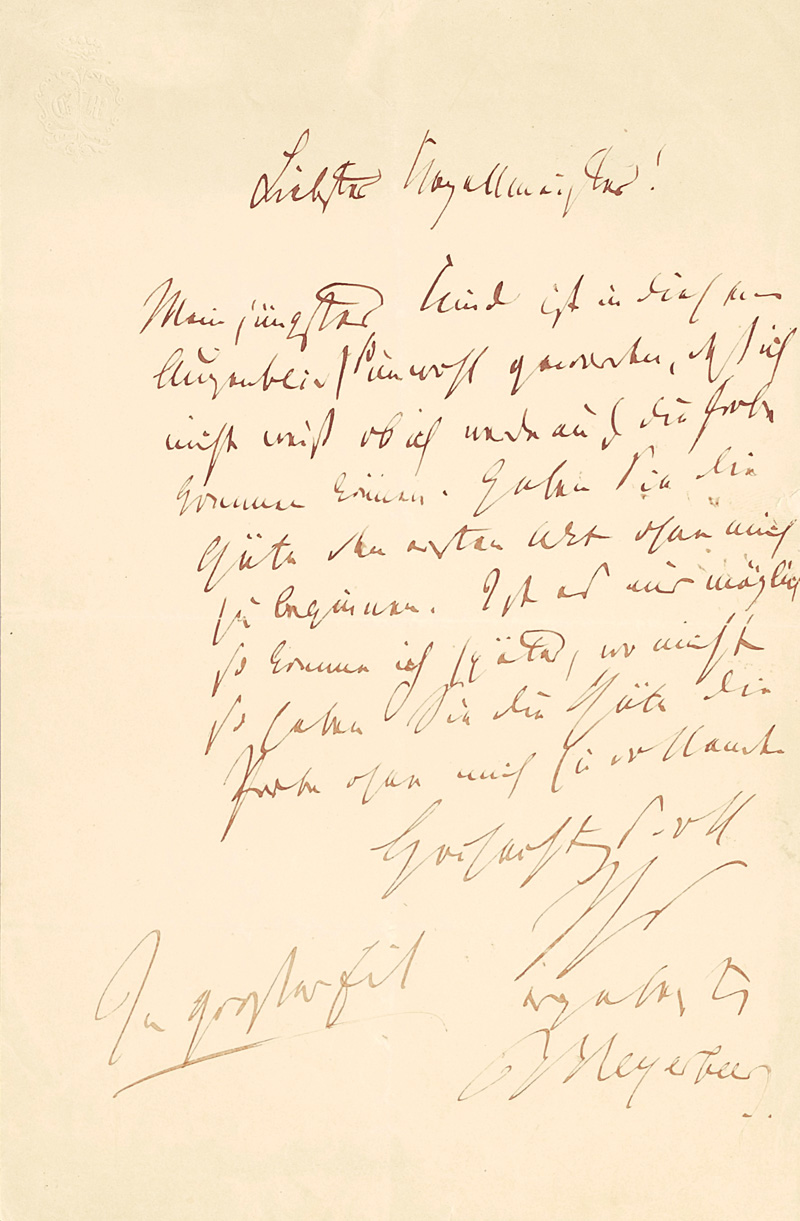 Liebster Kapellmeister!
Mein jüngstes Kind ist in diesem
Augenblick so unwohl geworden, daß ich
nicht weiß ob ich werde auf die Probe
kommen können. Haben Sie die
Güte den ersten Akt ohne mich
zu beginnen. Ist es nur möglich
so komme ich später, wo nicht
so haben Sie die Güte die
Probe ohne mich zu
Hochachtungsvoll
Ihr
ergebenster
Meyerbeer.
In großer Eil